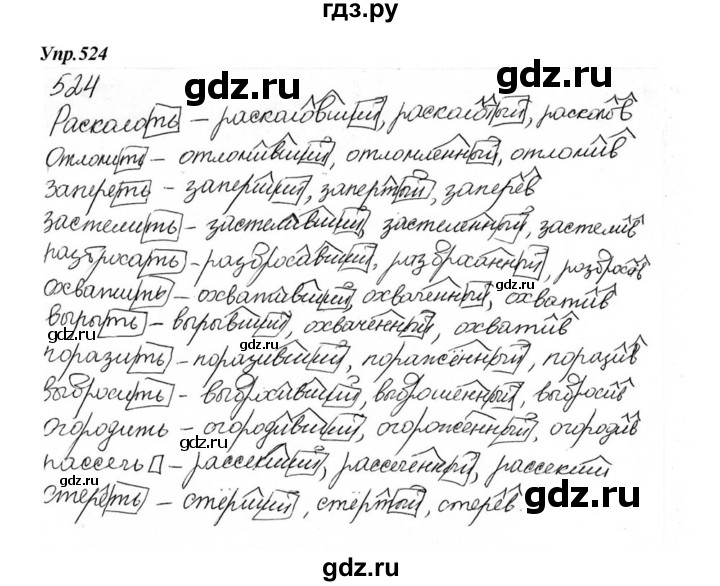 гдз.ру
Упр.524
524
gdz.ru gdz.ru
Расколоть – расколовший, расколотый, расколов
Отломить – отломивший, отломленный, отломив
Запереть – заперший, запертый, заперев
застелить – застеливший, застеленный, застелив
разбросать – разбросавший, разбросанный, разбросав
gdz.ru gdz.ru
охватить – охвативший, охваченный, охватив
вырыть – вырывший, охваченный, охватив
gdz.ru gdz.ru
поразить – поразивший, поражённый, поразив
выбросить – выбросивший, выброшенный, выбросив
огородить – огородивший, огороженный, огородив
gdz.ru gdz.ru
рассечь – рассекший, рассеченный,
стереть – стёрший, стёртый, стерев
gdz.ru gdz.ru
гдз.ру